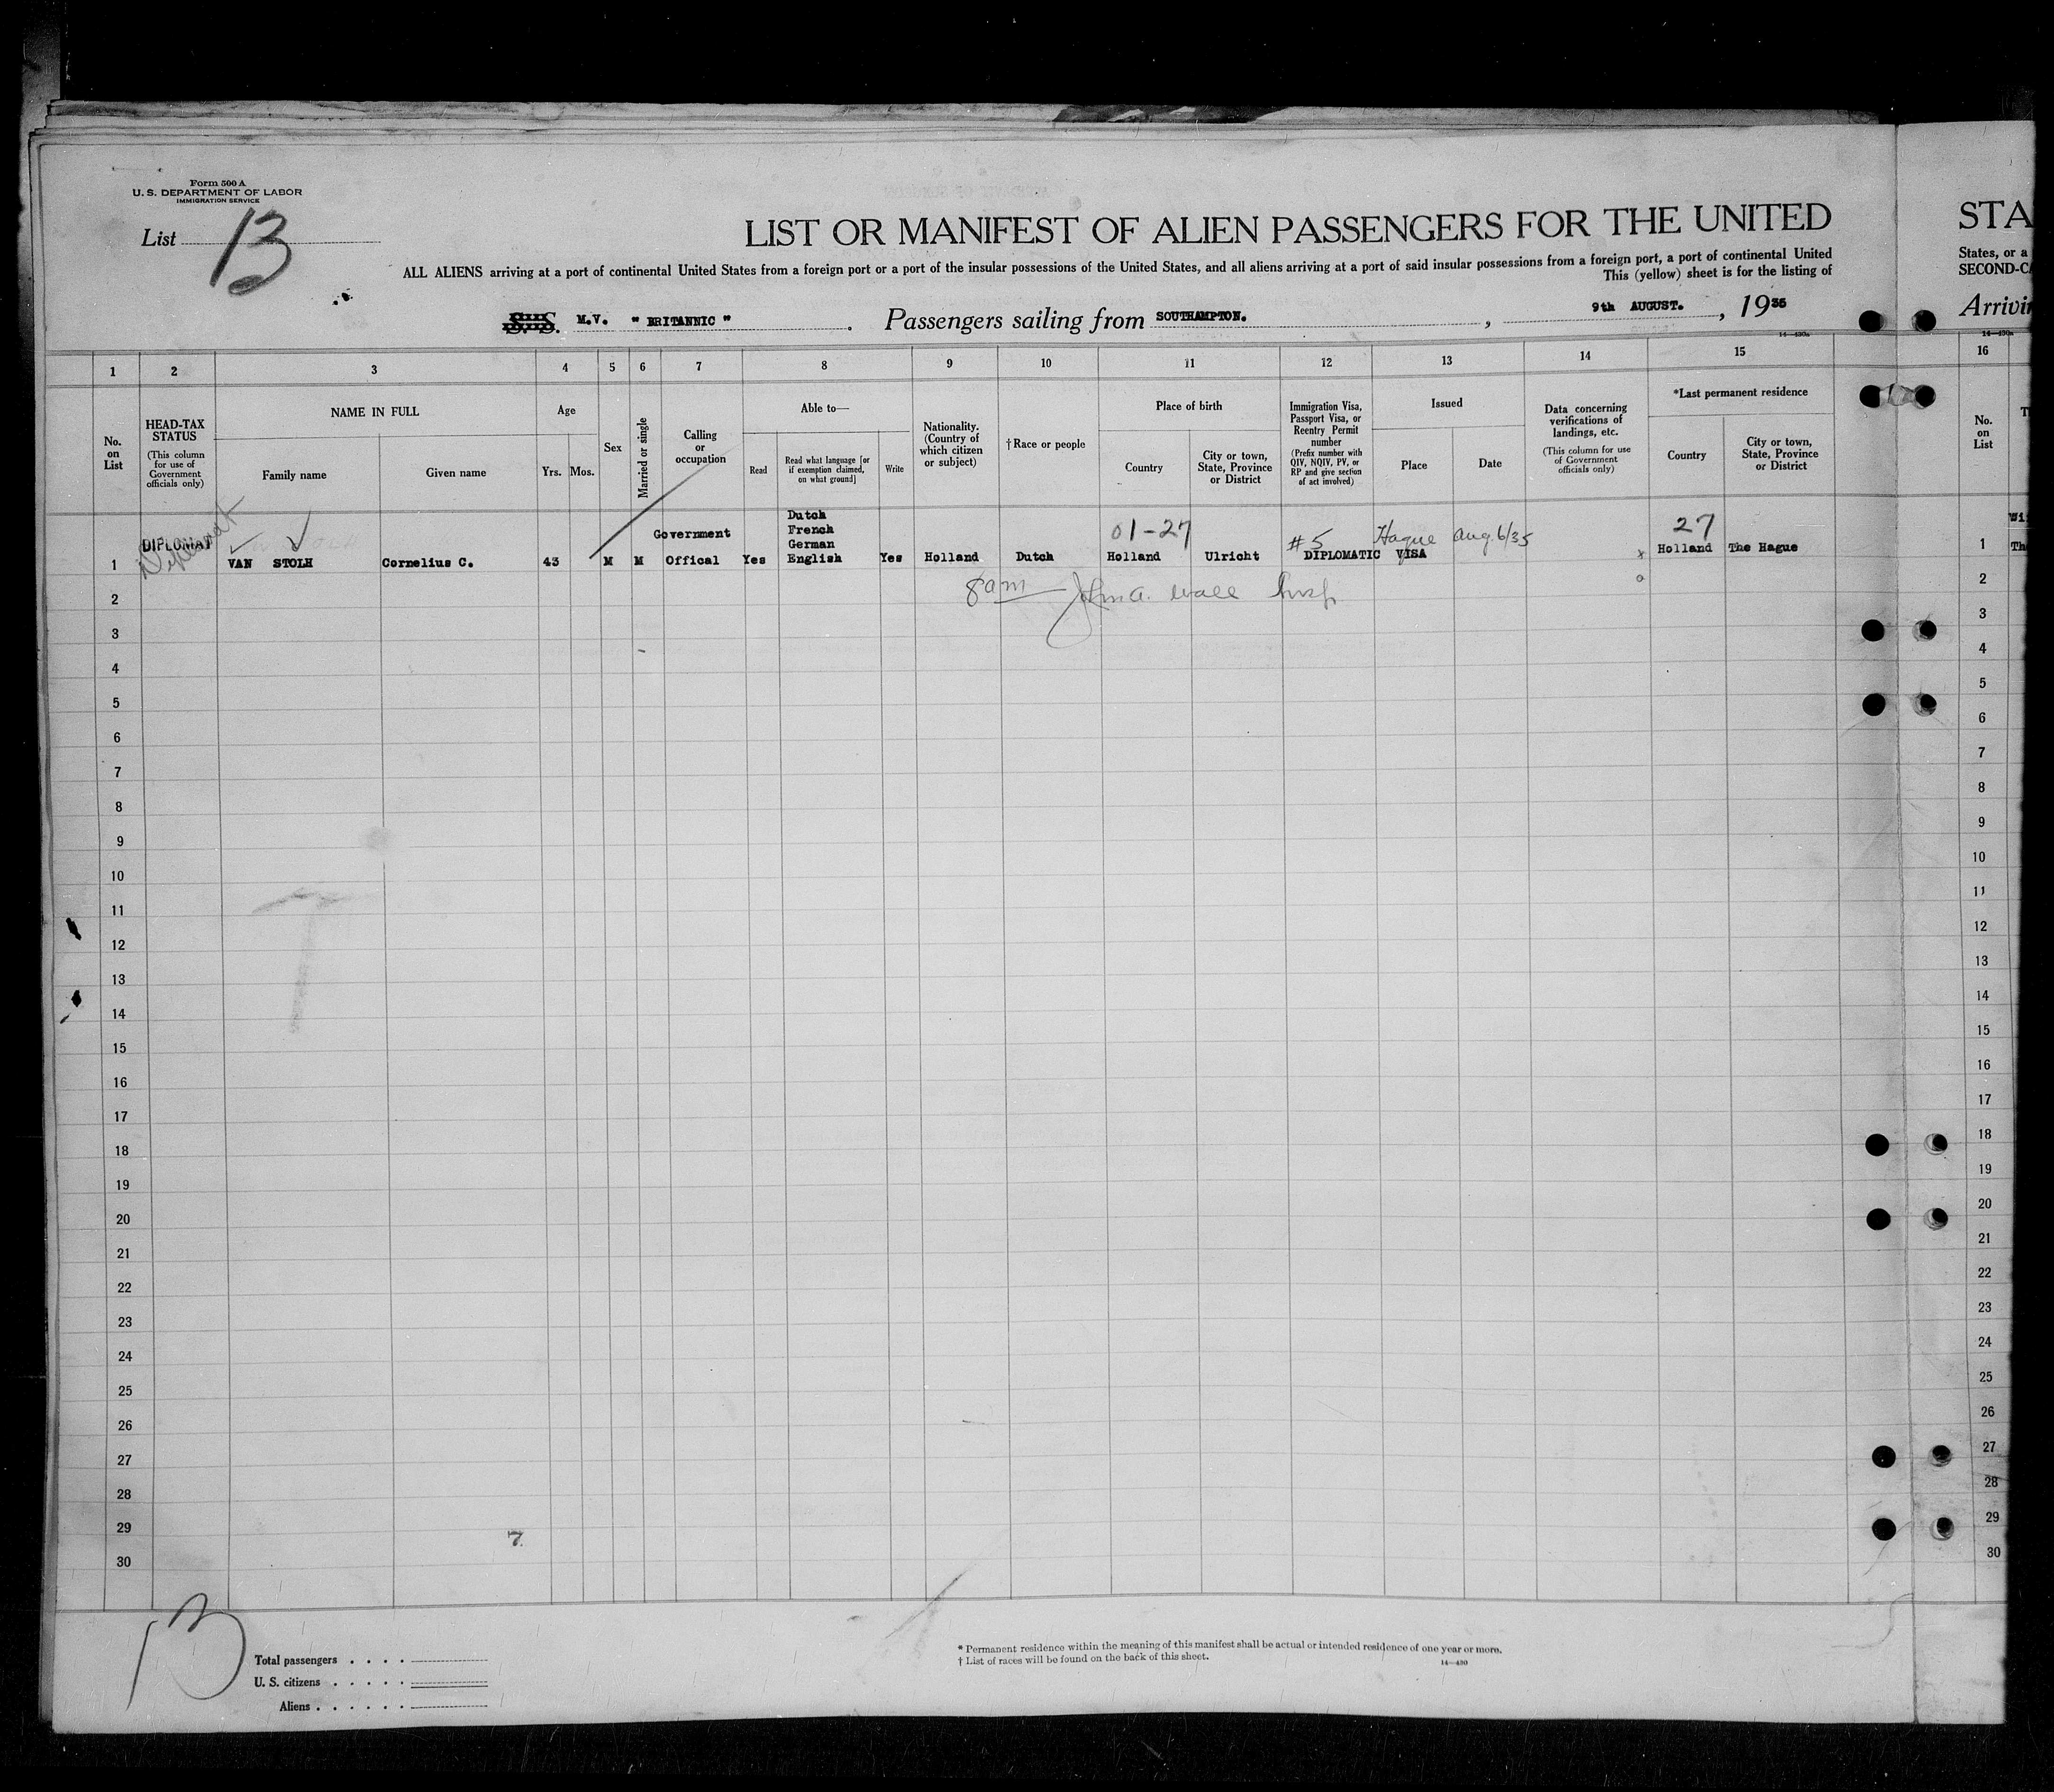 Form 500 A
U. S. DEPARTMENT OF LABOR
IMMIGRATION SERVICE
List 13
LIST OR MANIFEST OF ALIEN PASSENGERS FOR THE UNITED
STA
ALL ALIENS arriving at a port of continental United States from a foreign port or a port of the insular possessions of the United States, and all aliens arriving at a port of said insular possessions from a foreign port, a port of continental United
States, or a
This (yellow) sheet is for the listing of
SECOND-CA
S.S. M.V. " BRITANNIC ". Passengers sailing from SOUTHAMPTON. , 9th AUGUST. , 1935
Arrivin
14—430a
14—430a
1 2 3 4 5 6 7 8 9 10 11 12 13 14 15
16
No. on List
HEAD-TAX STATUS
(This column for use of Government officials only)
NAME IN FULL
Family name
Given name
Age
Yrs. Mos.
Sex
Married or single
Calling or occupation
Able to—
Read
Read what language [or if exemption claimed, on what ground]
Write
Nationality. (Country of which citizen or subject)
†Race or people
Place of birth
Country
City or town, State, Province or District
Immigration Visa, Passport Visa, or Reentry Permit number
(Prefix number with QIV, NQIV, PV, or RP and give section of act involved)
Issued
Place
Date
Data concerning verifications of landings, etc.
(This column for use of Government officials only)
*Last permanent residence
Country
City or town, State, Province or District
No. on List
1 DIPLOMAT Diplomat VAN STOLH Cornelius C. 43 M M Government Offical Yes Dutch French German English Yes Holland Dutch 01-27 Holland Ulricht #5 DIPLOMATIC VISA Hague Aug. 6/35 x 27 Holland The Hague
1
2 8am John A. Wall Insp
2
3
3
4
4
5
5
6
6
7
7
8
8
9
9
10
10
11
11
12
12
13
13
14
14
15
15
16
16
17
17
18
18
19
19
20
20
21
21
22
22
23
23
24
24
25
25
26
26
27
27
28
28
29 7.
29
30
30
13
Total passengers . . . .
U. S. citizens . . . . .
Aliens . . . . . .
* Permanent residence within the meaning of this manifest shall be actual or intended residence of one year or more.
† List of races will be found on the back of this sheet.
14—430